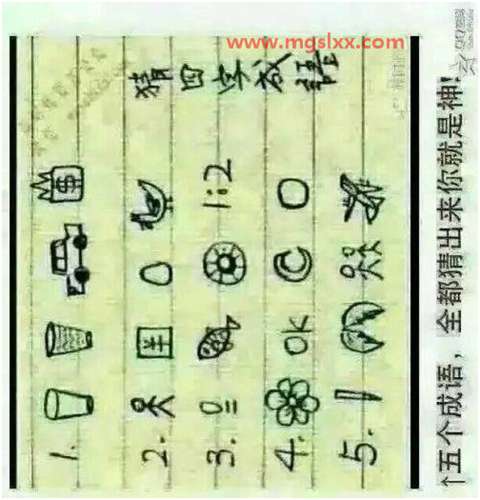 www.mgslxx.com
猜四字成语
1.
$
2.
羊
3.
1:2
4.
OK
5.
↑五个成语，全都猜出来你就是神!